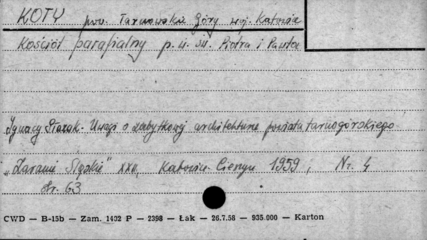 KOTY pow. Tarnowskie Góry woj. Katowice
Kościół parafialny p.w. św. Piotra i Pawła
Ignacy Płazak - Uwagi o zabytkowej architekturze powiatu tarnogórskiego
„Zaranie Śląskie” XXII, Katowice-Cieszyn 1959; Nr. 4
str. 63
CWD — B-15b — Zam. 1432 P — 2398 — Łak — 26.7.58 — 935.000 — Karton